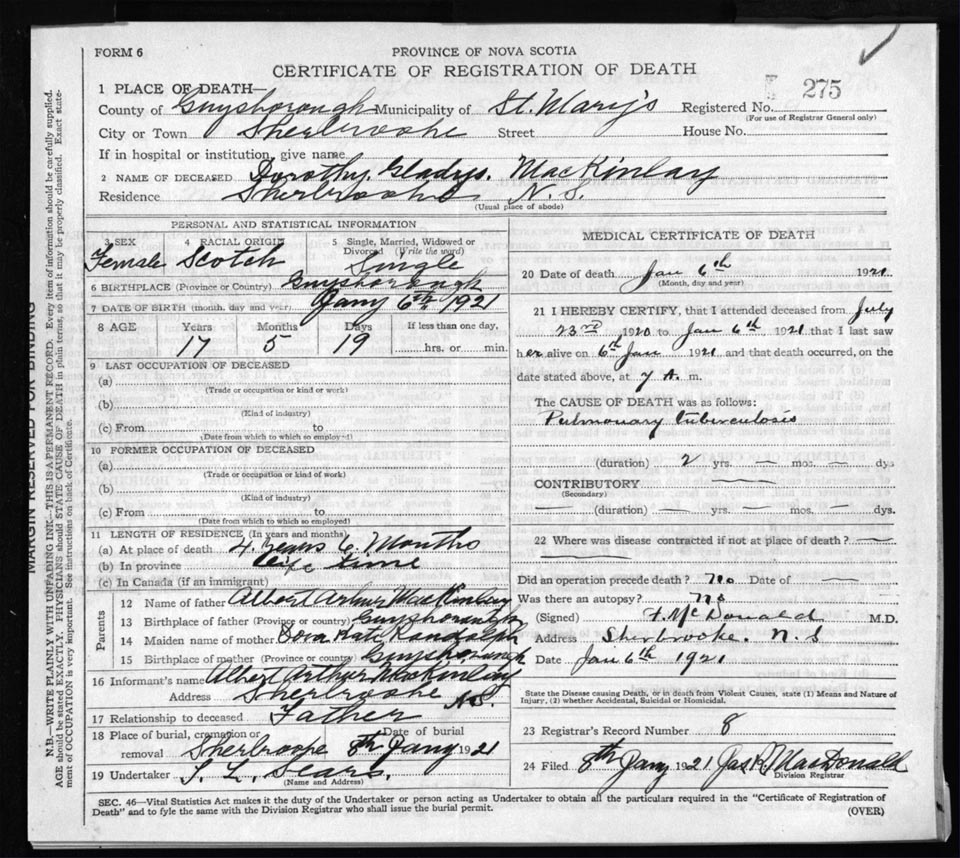 FORM 6
PROVINCE OF NOVA SCOTIA
CERTIFICATE OF REGISTRATION OF DEATH
1 PLACE OF DEATH—
275
County of Guysborough Municipality of St. Mary's Registered No.
(For use of Registrar General only)
City or Town Sherbrooke Street House No.
If in hospital or institution, give name
2 NAME OF DECEASED Dorothy Gladys. MacKinlay
Residence Sherbrooke N. S.
(Usual place of abode)
PERSONAL AND STATISTICAL INFORMATION
3 SEX 4 RACIAL ORIGIN 5 Single, Married, Widowed or Divorced (Write the word)
Female Scotch Single
6 BIRTHPLACE (Province or Country) Guysborough
7 DATE OF BIRTH (month, day and year) Jany 6th 1921
8 AGE Years Months Days If less than one day,
17 5 19 hrs. or min.
9 LAST OCCUPATION OF DECEASED
(a)
(Trade or occupation or kind of work)
(b)
(Kind of industry)
(c) From to
(Date from which to which so employed)
10 FORMER OCCUPATION OF DECEASED
(a)
(Trade or occupation or kind of work)
(b)
(Kind of industry)
(c) From to
(Date from which to which so employed)
11 LENGTH OF RESIDENCE (In years and months)
(a) At place of death 4 Years 6 Months
(b) In province life time
(c) In Canada (if an immigrant)
Parents
12 Name of father Albert Arthur MacKinlay
13 Birthplace of father (Province or country) Guysborough
14 Maiden name of mother Dora Kate Randolph
15 Birthplace of mother (Province or country) Guysborough
16 Informant's name Albert Arthur MacKinlay
Address Sherbrooke N.S.
17 Relationship to deceased Father
18 Place of burial, cremation or removal Sherbrooke Date of burial 8th Jany 1921
19 Undertaker S. L. Sears.
(Name and Address)
MEDICAL CERTIFICATE OF DEATH
20 Date of death Jan 6th 1921
(Month, day and year)
21 I HEREBY CERTIFY, that I attended deceased from July
23rd 1920 to Jan 6th 1921 that I last saw
her alive on 6th Jan 1921 and that death occurred, on the
date stated above, at 7 A. m.
The CAUSE OF DEATH was as follows:
Pulmonary tuberculosis
(duration) 2 yrs. — mos. — dys
CONTRIBUTORY —
(Secondary)
— (duration) — yrs. — mos. — dys.
22 Where was disease contracted if not at place of death? —
Did an operation precede death? no Date of —
Was there an autopsy? no
(Signed) F. McDonald M.D.
Address Sherbrooke. N. S
Date Jan 6th 1921
State the Disease causing Death, or in death from Violent Causes, state (1) Means and Nature of
Injury, (2) whether Accidental, Suicidal or Homicidal.
23 Registrar's Record Number 8
24 Filed 8th Jany 1921 Jas R. MacDonald
Division Registrar
SEC. 46—Vital Statistics Act makes it the duty of the Undertaker or person acting as Undertaker to obtain all the particulars required in the "Certificate of Registration of
Death" and to fyle the same with the Division Registrar who shall issue the burial permit.
(OVER)
MARGIN RESERVED FOR BINDING
N.B.—WRITE PLAINLY WITH UNFADING INK—THIS IS A PERMANENT RECORD. Every item of information should be carefully supplied.
AGE should be stated EXACTLY. PHYSICIANS should STATE CAUSE OF DEATH in plain terms, so that it may be properly classified. Exact state-
ment of OCCUPATION is very important. See instructions on back of Certificate.